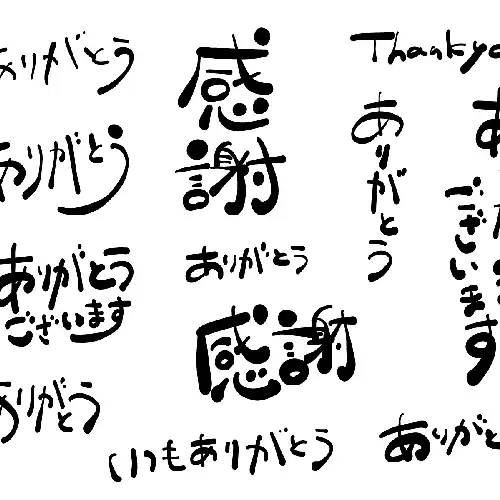 ありがとう
ありがとう
ありがとう
ございます
ありがとう
感
謝
ありがとう
感謝
いつもありがとう
Thankyo
ありがとう
ございます
ありがと